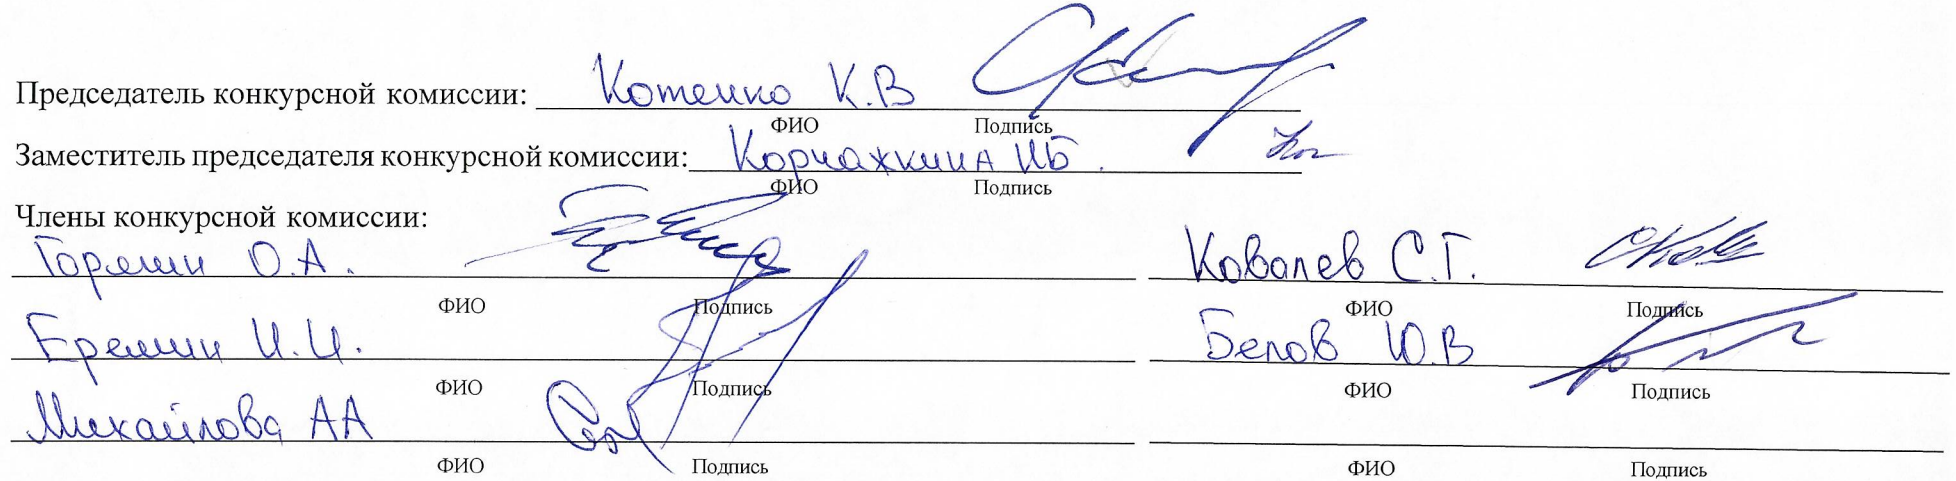 Председатель конкурсной комиссии: Котенко К.В
ФИО Подпись
Заместитель председателя конкурсной комиссии: Корчажкина НБ.
ФИО Подпись
Члены конкурсной комиссии:
Горяшин О.А. Ковалев С.Г.
ФИО Подпись ФИО Подпись
Еремин И.И. Белов Ю.В
ФИО Подпись ФИО Подпись
Михайлова АА
ФИО Подпись ФИО Подпись